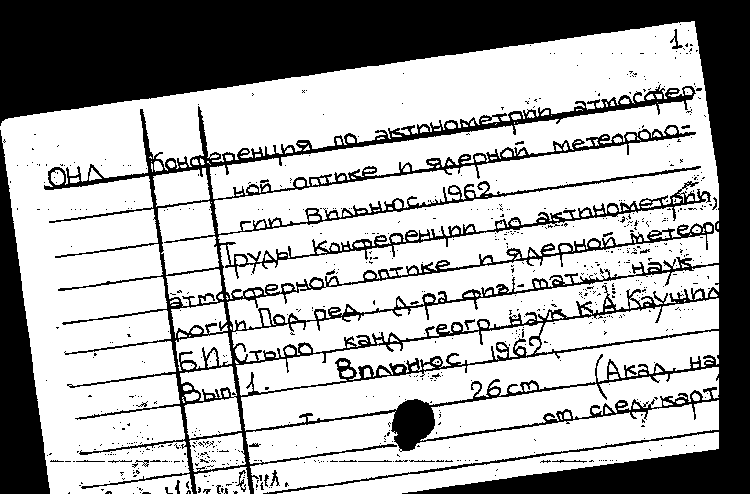 1.
ОНЛ Конференция по актинометрии, атмосфер-
ной оптике и ядерной метеороло-
гии. Вильнюс. 1962.
Труды Конференции по актинометрии,
атмосферной оптике и ядерной метеоро
логии. Под ред.: д-ра физ.-мат. наук
Б.И. Стыро, канд. геогр. наук К.А. Каушил
Вып. 1. Вильнюс, 1962
т. 26 cm. (Акад. на
см. след. карт